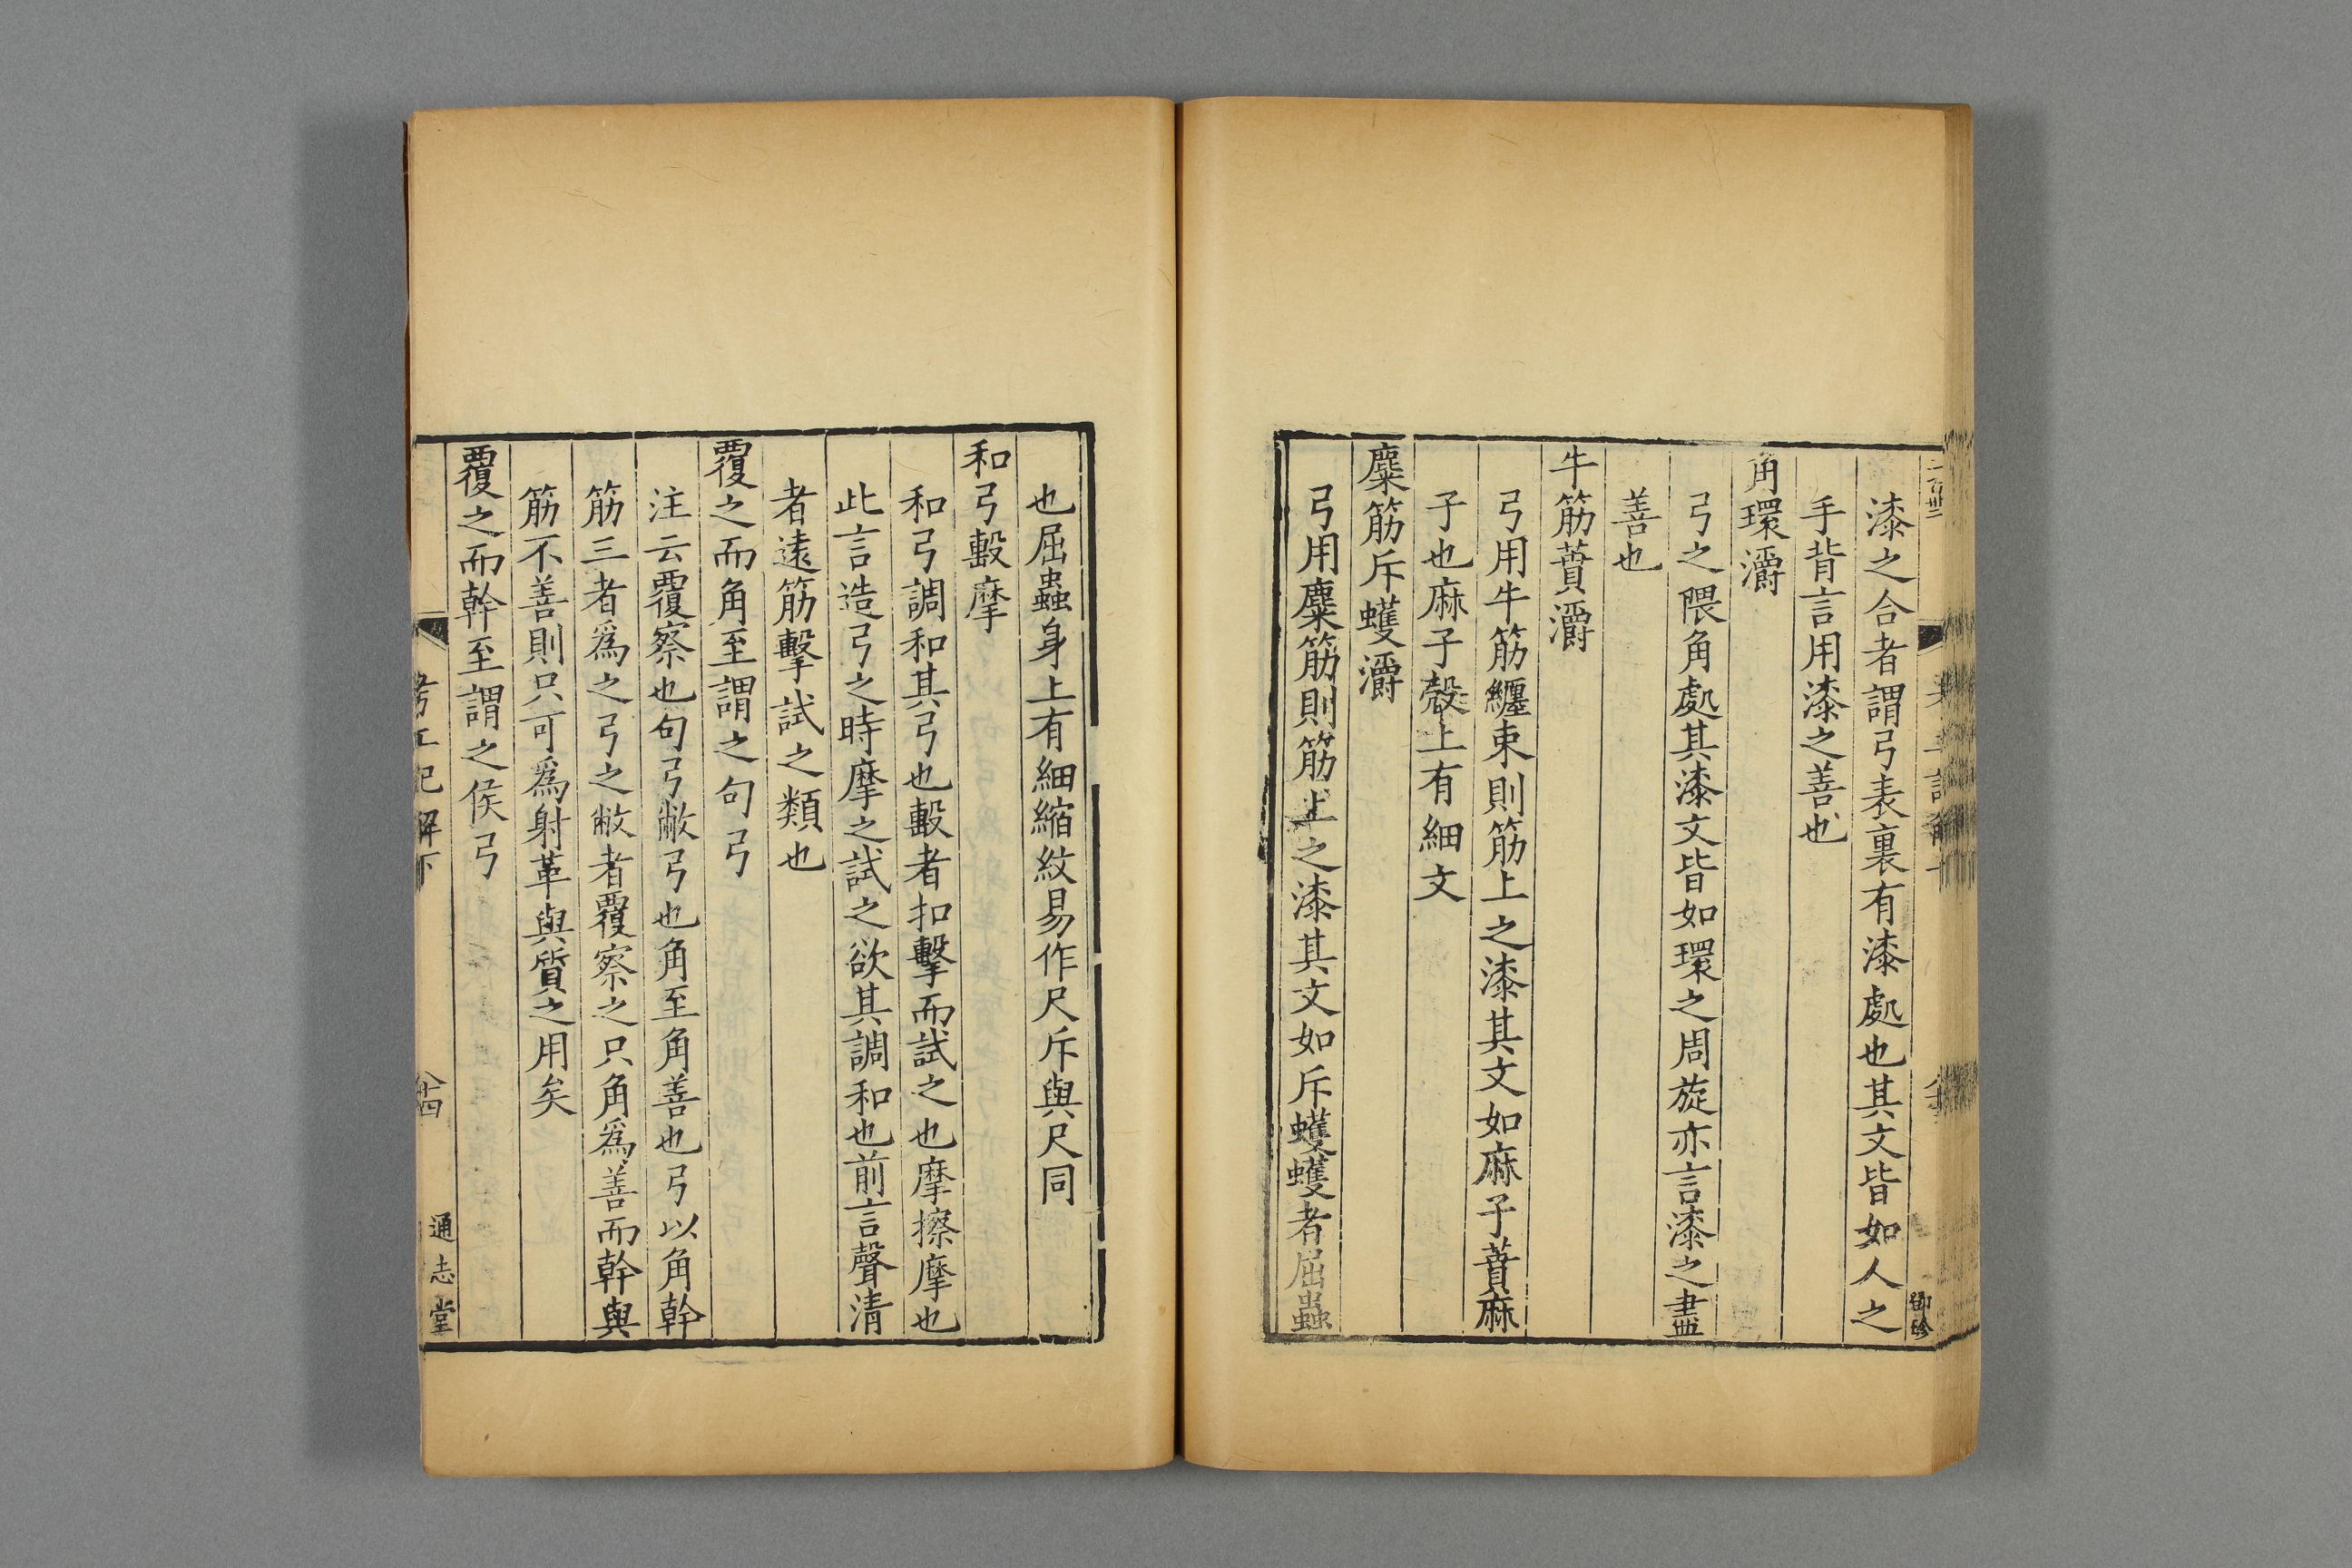 漆之合者謂弓表裏有漆處也其文皆如人之
手背言用漆之善也
角環灂
弓之隈角處其漆文皆如環之周旋亦言漆之盡
善也
牛筋蕡灂
弓用牛筋纏束則筋上之漆其文如麻子蕡麻
子也麻子殼上有細文
麋筋斥蠖灂
弓用麋筋則筋上之漆其文如斥蠖蠖者屈蟲
也屈蟲身上有細縮紋易作尺斥與尺同
和弓毄摩
和弓調和其弓也毄者扣擊而試之也摩擦摩也
此言造弓之時摩之試之欲其調和也前言聲清
者遠筋擊試之類也
覆之而角至謂之句弓
注云覆察也句弓敝弓也角至角善也弓以角幹
筋三者爲之弓之敝者覆察之只角爲善而幹與
筋不善則只可爲射革與質之用矣
覆之而幹至謂之侯弓
考工記解下
通志堂